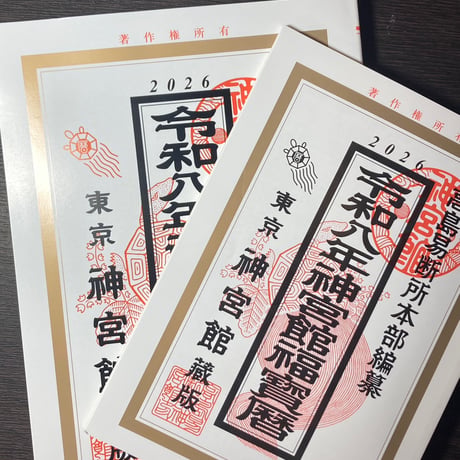 著作権所有
2026
令和八年
東京 神宮館
著作権所有
2026
高島易断所本部編纂
令和八年神宮館福寳暦
東京 神宮館 蔵版